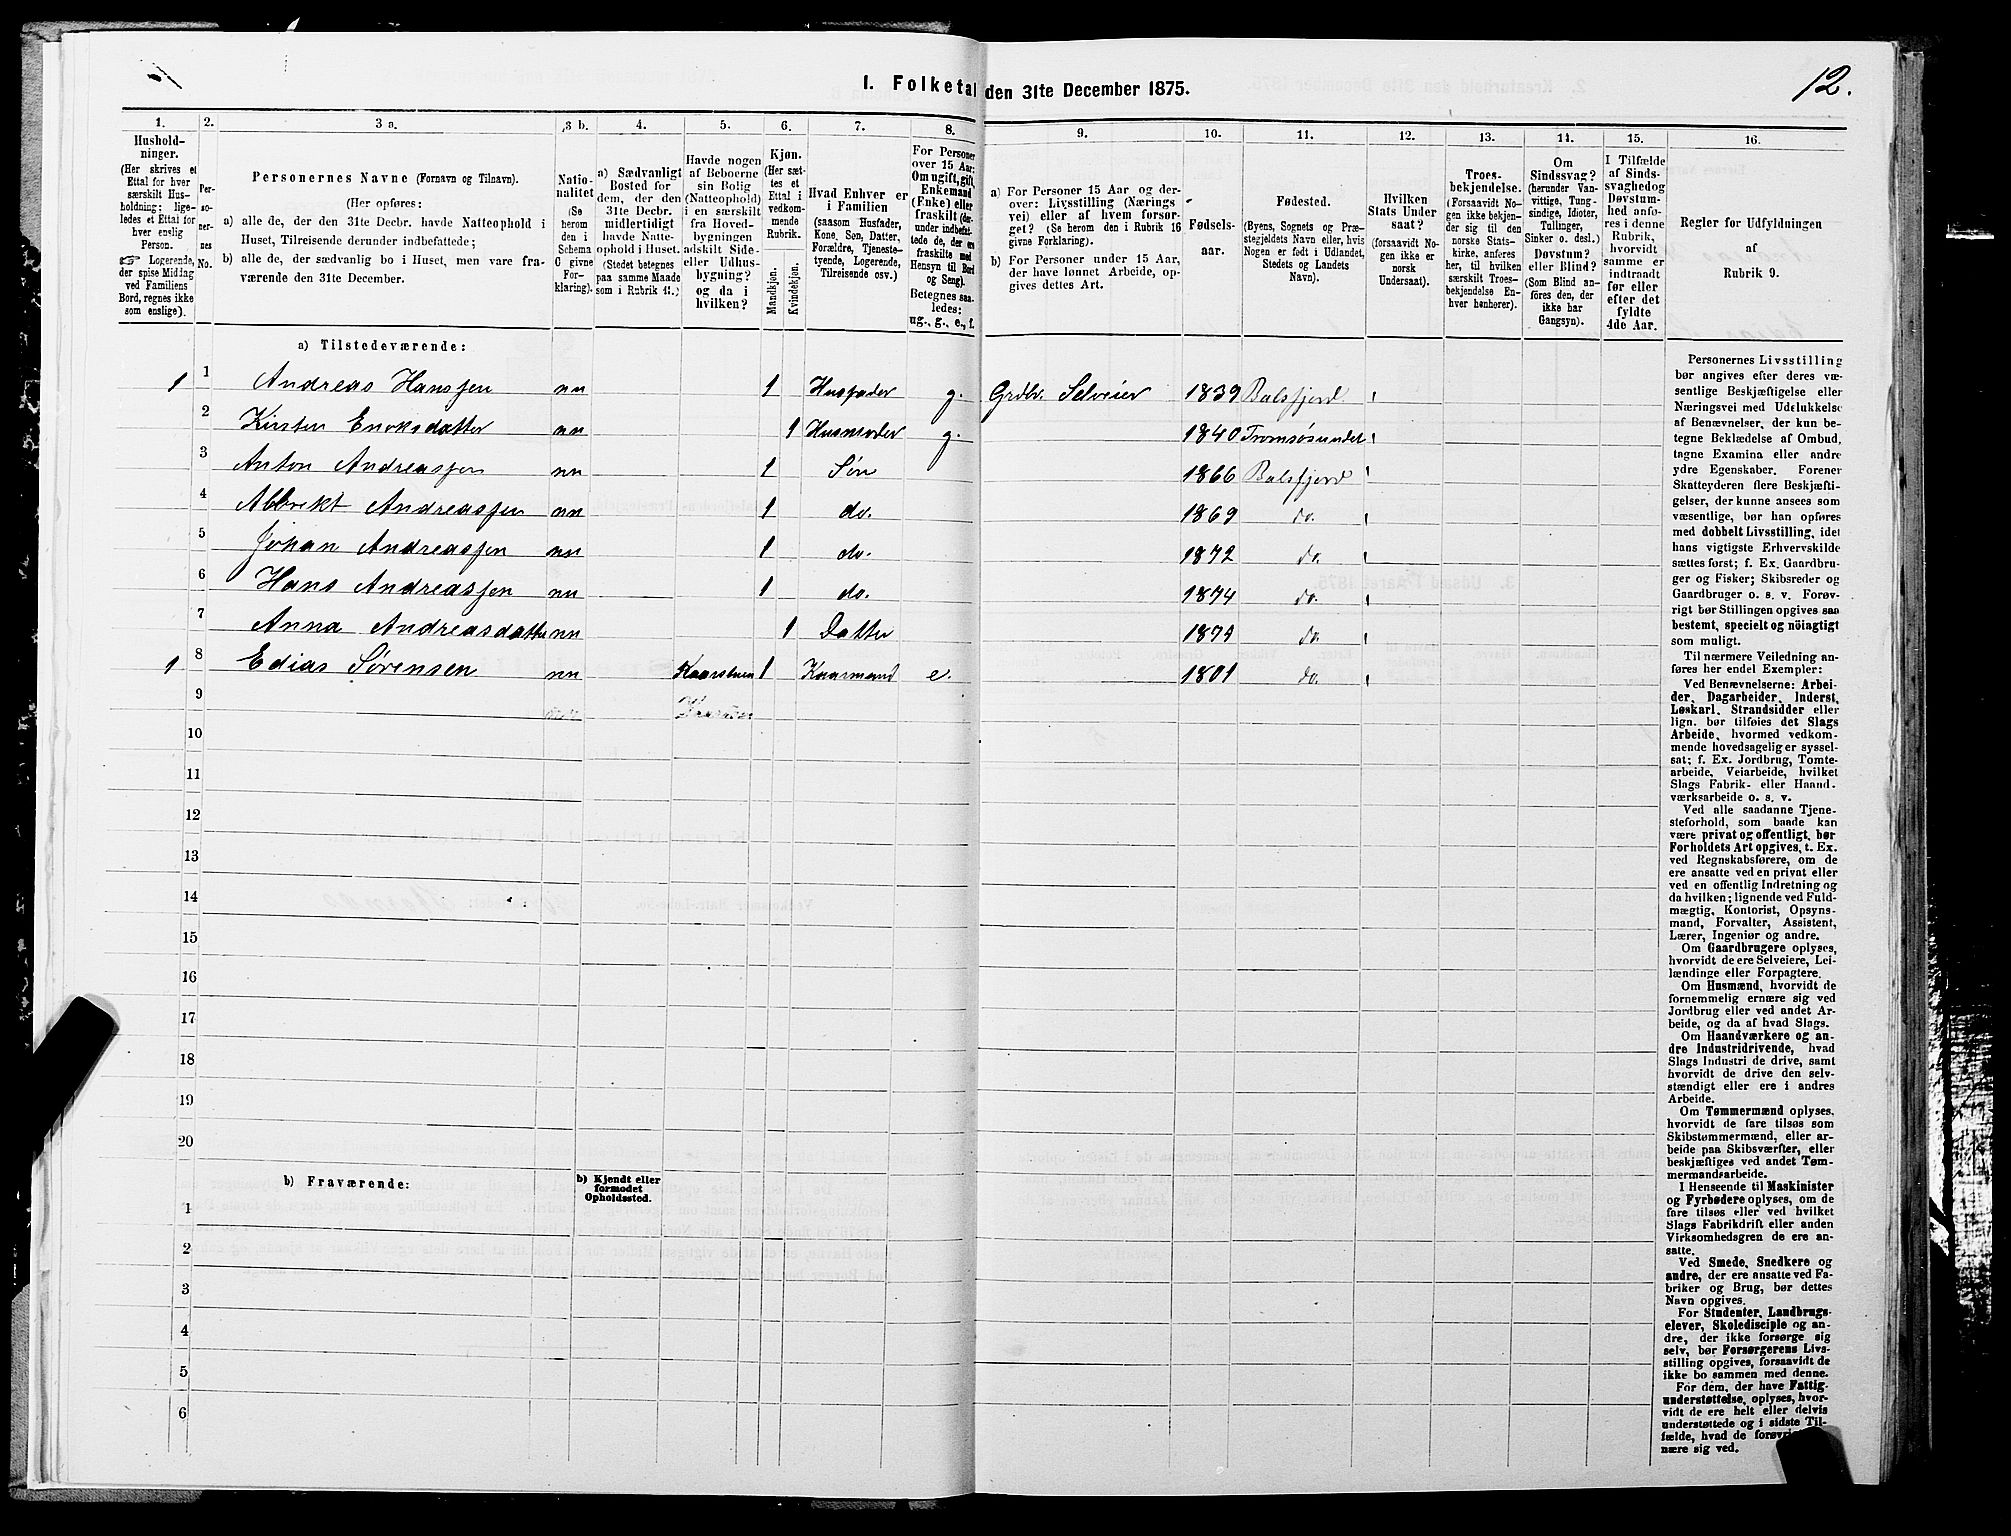 12.
I. Folketal den 31te December 1875.
1. 2. 3 a. 3 b. 4. 5. 6. 7. 8. 9. 10. 11. 12. 13. 14. 15. 16.
Hushold-
ninger.
(Her skrives et
Ettal for hver
særskilt Hus-
holdning; lige-
ledes et Ettal for
hver enslig
Person.
☞ Logerende,
der spise Middag
ved Familiens
Bord, regnes ikke
som enslige).
Per-
so-
ner-
nes
No.
Personernes Navne (Fornavn og Tilnavn).
(Her opføres:
a) alle de, der den 31te Decbr. havde Natteophold i
Huset, Tilreisende derunder indbefattede;
b) alle de, der sædvanlig bo i Huset, men vare fra-
værende den 31te December.
Natio-
nalitet
(Se
herom
den i
Schema
C givne
For-
klaring).
a) Sædvanligt
Bosted for
dem, der den
31te Decbr.
midlertidigt
havde Natte-
ophold i Huset.
(Stedet betegnes
paa samme Maade
som i Rubrik 11.)
Havde nogen
af Beboerne
sin Bolig
(Natteophold)
i en særskilt
fra Hoved-
bygningen
adskilt Side-
eller Udhus-
bygning?
og da i
hvilken?
Kjøn.
(Her sæt-
tes et
Ettal i
vedkom-
mende
Rubrik.
Mandkjøn.
Kvindekjøn.
Hvad Enhver er
i Familien
(saasom Husfader,
Kone, Søn, Datter,
Forældre, Tjeneste-
tyende, Logerende,
Tilreisende osv.)
For Personer
over 15 Aar:
Om ugift, gift,
Enkemand
(Enke) eller
fraskilt (der-
under indbefat-
tede de, der ere
fraskilte med
Hensyn til Bord
og Seng).
Betegnes saa-
ledes:
ug., g., e., f.
a) For Personer 15 Aar og der-
over: Livsstilling (Nærings
vei) eller af hvem forsør-
get? (Se herom den i Rubrik 16
givne Forklaring).
b) For Personer under 15 Aar,
der have lønnet Arbeide, op-
gives dettes Art.
Fødsels-
aar.
Fødested.
(Byens, Sognets og Præ-
stegjeldets Navn eller, hvis
Nogen er født i Udlandet,
Stedets og Landets
Navn).
Hvilken
Stats Under
saat?
(forsaavidt No-
gen ikke er
norsk
Undersaat).
Troes-
bekjendelse.
(Forsaavidt No-
gen ikke bekjen-
der sig til den
norske Stats-
kirke, anføres
her, til hvilken
særskilt Troes-
bekjendelse En-
hver henhører).
Om
Sindssvag?
(herunder Van-
vittige, Tung-
sindige, Idioter,
Tullinger,
Sinker o. desl.)
Døvstum?
eller Blind?
(Som Blind an-
føres den, der
ikke har
Gangsyn).
I Tilfælde
af Sinds-
svaghed og
Døvstum-
hed anfø-
res i denne
Rubrik,
hvorvidt
samme er
indtraadt
før eller
efter det
fyldte
4de Aar.
Regler for Udfyldningen
af
Rubrik 9.
a) Tilstedeværende:
1 1 Andreas Hanssen nn 1 Husfader g. Grdbr. Selveier 1839 Balsfjord
2 Kirsten Enoksdatter nn 1 Husmoder g. 1840 Tromsøsundet
3 Anton Andreassen nn 1 Søn 1866 Balsfjord
4 Albrikt Andreassen nn 1 do. 1869 do.
5 Johan Andreassen nn 1 do. 1872 do.
6 Hans Andreassen nn 1 do. 1874 do.
7 Anna Andreasdatter nn 1 Datter 1874 do.
1 8 Edias Sørensen nn Kaarstuen 1 Kaarmand e. 1801 do.
9
10
11
12
13
14
15
16
17
18
19
20
b) Fraværende:
b) Kjendt eller
formodet
Opholdssted.
1
2
3
4
5
6
Personernes Livsstilling
bør angives efter deres væ-
sentlige Beskjæftigelse eller
Næringsvei med Udelukkelse
af Benævnelser, der kun be-
tegne Beklædelse af Ombud,
tagne Examina eller andre
ydre Egenskaber. Forener
Skatteyderen flere Beskjæfti-
gelser, der kunne ansees som
væsentlige, bør han opføres
med dobbelt Livsstilling, idet
hans vigtigste Erhvervskilde
sættes først; f. Ex. Gaardbru-
ger og Fisker; Skibsreder og
Gaardbruger o. s. v. Forøv-
rigt bør Stillingen opgives saa
bestemt, specielt og nöiagtigt
som muligt.
Til nærmere Veiledning an-
føres her endel Exempler:
Ved Benævnelserne: Arbei-
der, Dagarbeider, Inderst,
Løskarl, Strandsidder eller
lign. bør tilføies det Slags
Arbeide, hvormed vedkom-
mende hovedsagelig er syssel-
sat; f. Ex. Jordbrug, Tomte-
arbeide, Veiarbeide, hvilket
Slags Fabrik- eller Haand-
værksarbeide o. s. v.
Ved alle saadanne Tjene-
steforhold, som baade kan
være privat og offentligt, bør
Forholdets Art opgives, t. Ex.
ved Regnskabsførere, om de
ere ansatte ved en privat eller
ved en offentlig Indretning og
da hvilken; lignende ved Fuld-
mægtig, Kontorist, Opsyns-
mand, Forvalter, Assistent,
Lærer, Ingeniør og andre.
Om Gaardbrugere oplyses,
hvorvidt de ere Selveiere, Lei-
lændinge eller Forpagtere.
Om Husmænd, hvorvidt de
fornemmelig ernære sig ved
Jordbrug eller ved andet Ar-
beide, og da af hvad Slags.
Om Haandværkere og an-
dre Industridrivende, hvad
Slags Industri de drive, samt
hvorvidt de drive den selv-
stændigt eller ere i andres
Arbeide.
Om Tømmermænd oplyses,
hvorvidt de fare tilsøs som
Skibstømmermænd, eller ar-
beide paa Skibsværfter, eller
beskjæftiges ved andet Tøm-
mermandsarbeide.
I Henseende til Maskinister
og Fyrbødere oplyses, om de
fare tilsøs eller ved hvilket
Slags Fabrikdrift eller anden
Virksomhedsgren de ere an-
satte.
Ved Smede, Snedkere og
andre, der ere ansatte ved Fa-
briker og Brug, bør dettes
Navn opgives.
For Studenter, Landbrugs-
elever, Skoledisciple og an-
dre, der ikke forsørge sig
selv, bør Forsørgerens Livs-
stilling opgives, forsaavidt de
ikke bo sammen med denne.
For dem, der have Fattig-
understøttelse, oplyses, hvor-
vidt de ere helt eller delvis
understøttede og i sidste Til-
fælde, hvad de forøvrigt
nære sig ved.